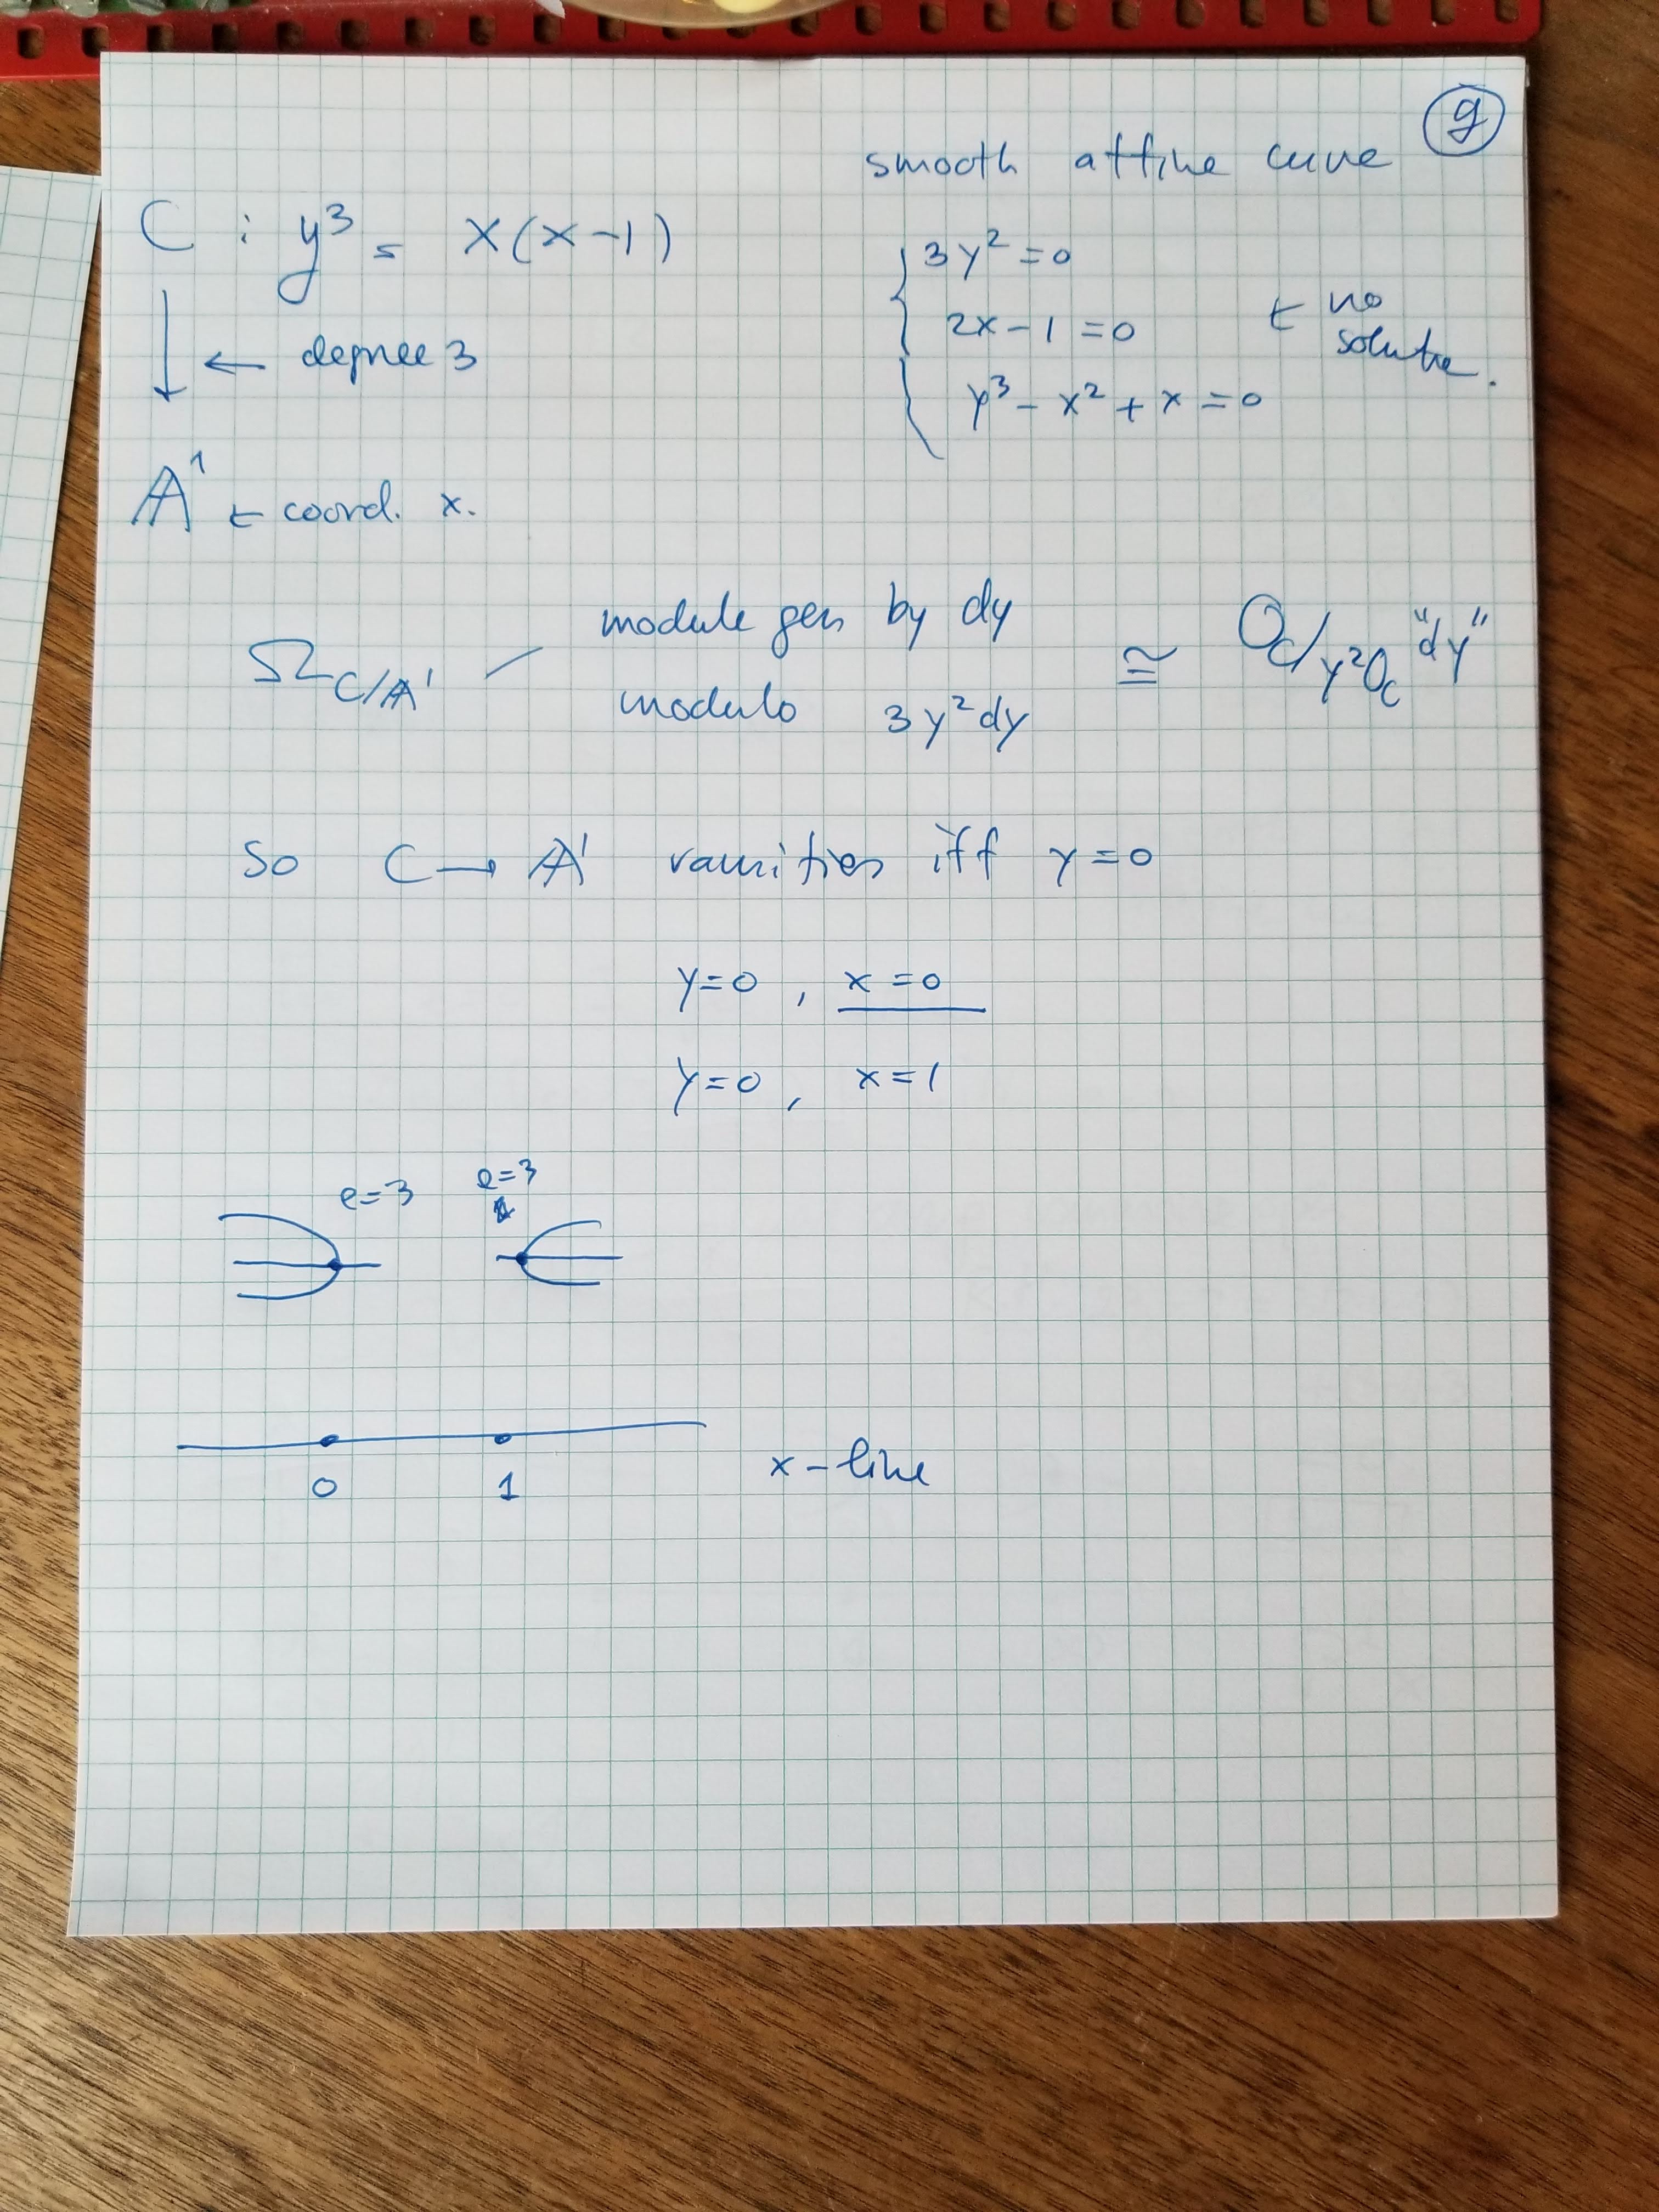 9
smooth affine curve
C : y³ = x(x-1)
3y² = 0
2x - 1 = 0
y³ - x² + x = 0
← no
solution.
← degree 3
𝔸¹ ← coord. x.
Ω_{C/𝔸¹} — module gen by dy
modulo 3y²dy
≅ O_C/y²O_C "dy"
So C → 𝔸¹ ramifies iff y = 0
y = 0 , x = 0
y = 0 , x = 1
e=3 e=3
0 1
x-line